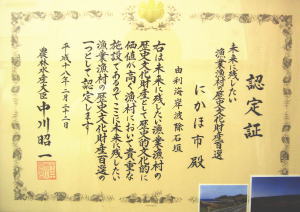 認定証
未来に残したい
漁業漁村の歴史文化財産百選
にかほ市 殿
由利海岸波除石垣
右は未来に残したい漁業漁村の
歴史文化財産として歴史的文化的に
価値が高く漁村において貴重な
施設であるのでここに未来に残したい
漁業漁村の歴史文化財産百選の
一つとして認定します
平成十八年二月二十二日
農林水産大臣 中川昭一